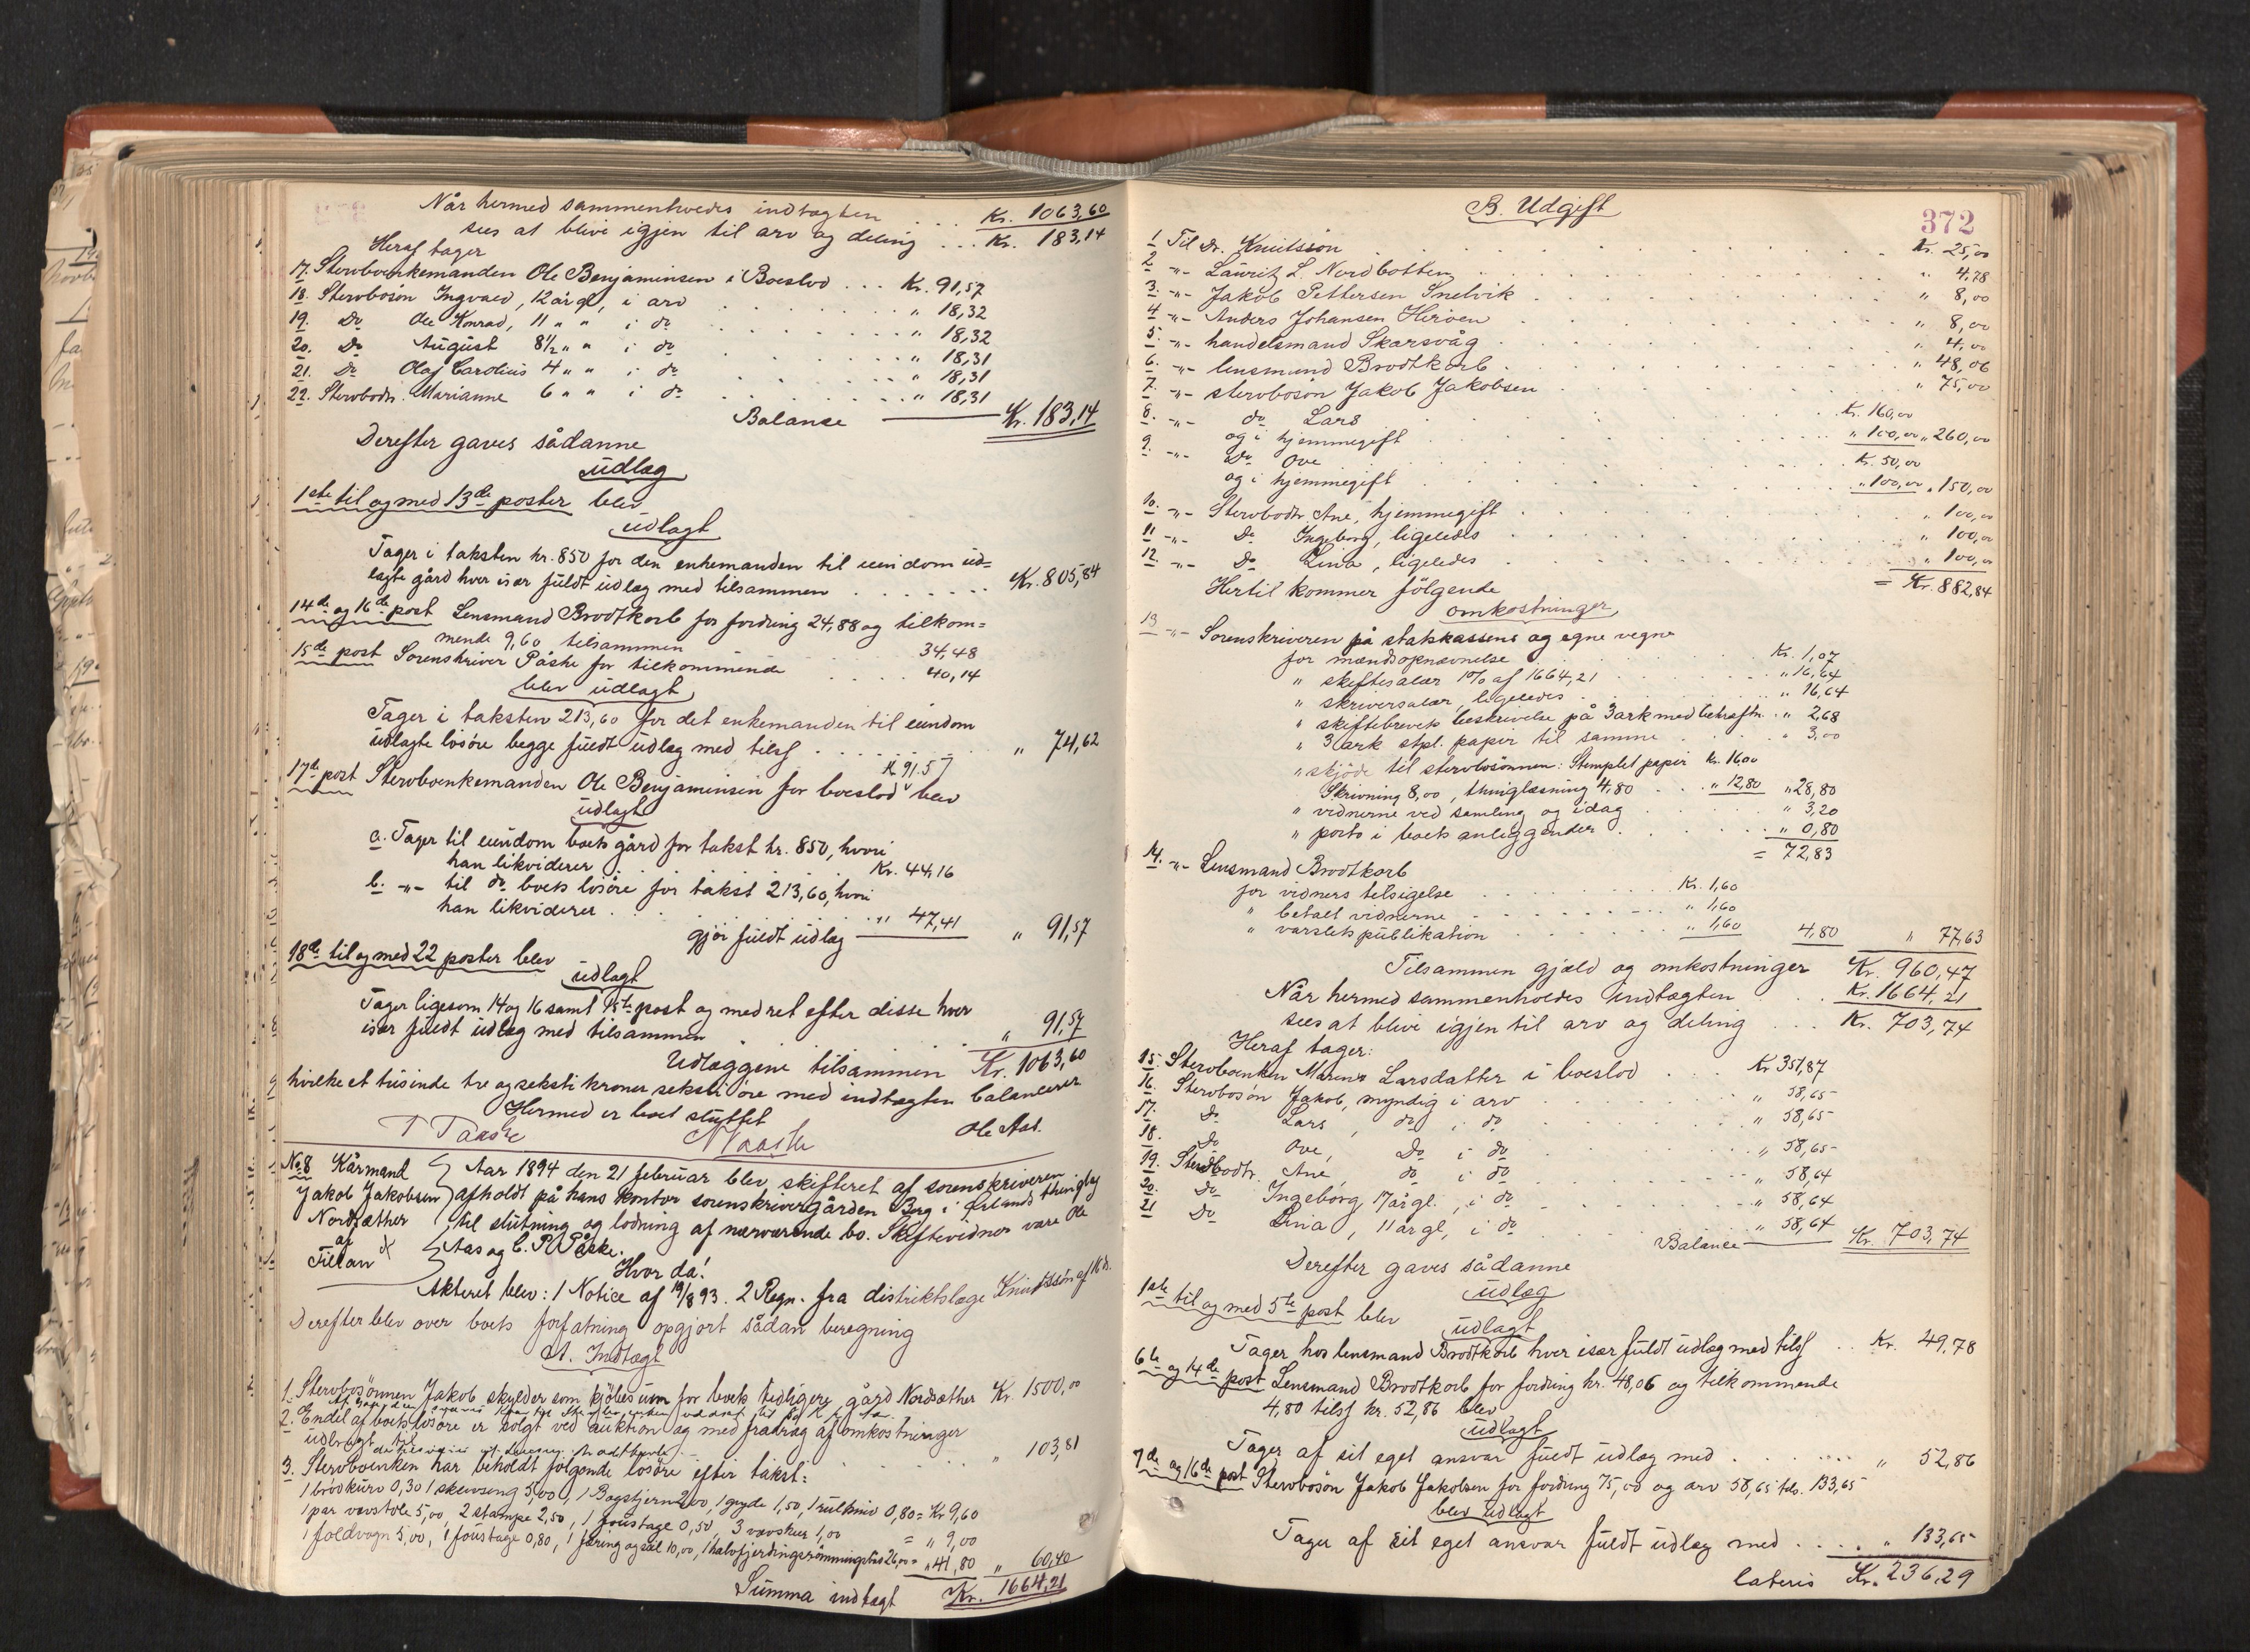 Når hermed sammenhodes indtægten ... Kr. 1063,60
sees at blive igjen til arv og deling ... Kr. 183,14
Heraf tager
17. Stervboenkemanden Ole Benjaminsen i Boeslod ... Kr. 91,57
18. Stervbosøn Ingvald, 12 år gl, i arv " 18,32
19. Do Ole Konrad, 11 " " i do " 18,32
20. Do August 8½ " " i do " 18,31
21. Do Olaf Carolius 4 " " i do " 18,31
22. Stervbodtr. Marianne 6 " " i do " 18,31
Balanse Kr. 183,14
Derefter gaves sådanne
udlæg
1ste til og med 13de poster blev
udlagt
Tager i taksten kr. 850 for den enkemanden til eiendom ud=
lagte gård hver især fuldt udlæg med tilsammen ... Kr. 805,84
14de og 16de post Lensmand Brodtkorb for fordring 24,88 og tilkom=
mende 9,60 tilsammen 34,48
15de post Sorenskriver Påske for tilkommende 40,14
blev udlagt
Tager i taksten 213,60 for det enkemanden til eiendom
udlagte løsøre begge fuldt udlæg med tils. ... " 74,62
Kr 91.57
17de post Stervboenkemanden Ole Benjaminsen for boeslod blev
udlagt
a. Tager til eiendom boets gård for takst kr. 850, hvori
han likviderer Kr. 44,16
b. -"- til do boets løsøre for takst 213,60, hvori
han likviderer " 47,41
gjør fuldt udlæg " 91,57
18de til og med 22 poster blev
udlagt
Tager ligesom 14 og 16 samt 15de post og med ret efter disse hver
især fuldt udlæg med tilsammen " 91,57
Udlæggene tilsammen Kr. 1063,60
hvilke et tusinde tre og seksti kroner seksti øre med indtægten balancerer
Hermed er boet sluttet
T Paaske Ole Aas.
No. 8 Kårmand Aar 1894 den 21 februar blev skifteret af sorenskriveren
Jakob Jakobsen afholdt på hans kontor sorenskrivergården Berg i Ørlands thinglag
Nordsæther til slutning og lodning af nærværende bo. Skiftevidner vare Ole
af Aas og C. P. Påske.
Fillan
Hvor da!
Akteret blev: 1 Notice af 19/8 93. 2 Regn. fra distriktslæge Knudtssøn af
Derefter blev over boets forfatning opgjort sådan beregning
A. Indtægt
1. Stervbosønnen Jakob skylder som kjøbesum for boets tidligere gård Nordsæther Kr. 1500,00
2. Endel af boets løsøre er solgt ved auktion og med fradrag af omkostninger
udbragt til " 103,81
3. Stervboenken har beholdt følgende løsøre efter takst:
1 brødkurv 0,30 1 skevseng 5,00, 1 Bagstjern 2,00, 1 gryde 1,50, 1 rulkniv 0,80 = Kr 9,60
1 par vævstole 5,00, 2 stampe 2,50, 1 foustage 0,50, 3 vævskeer 1,00 = " 9,00
1 foldvogn 5,00, 1 foustage 0,80, 1 færing og seil 10,00, 1 halvfjerdingsrømmingsfis 26,00 = " 41,80 " 60,40
Summa indtægt Kr. 1664,21
B. Udgift
372
1. Til Dr. Knudtsson Kr. 25,00
2. -"- Lauritz L. Nordbotten " 4,78
3. -"- Jakob Pettersen Snelvik " 8,00
4. -"- Anders Johansen Herøen " 8,00
5. -"- handelsmand Skarsvåg " 4,00
6. -"- lensmand Brodtkorb " 48,06
7. -"- stervbosøn Jakob Jakobsen " 75,00
8. -"- do Lars Kr. 160,00
og i hjemmegift " 100,00 " 260,00
9. -"- Do Ove Kr. 50,00
og i hjemmegift " 100,00 " 150,00
10. -"- Stervbodtr. Ane, hjemmegift " 100,00
11 -"- Do Ingeborg, ligeledes " 100,00
12. -"- Do Lina, ligeledes " 100,00
= Kr. 882,84
Hertil kommer følgende
omkostninger
13 -"- Sorenskriveren på statskassens og egne vegne
for mændsopnævnelse Kr. 1,07
" skiftesalær 1% af 1664,21 " 16,64
" skriversalær, ligeledes " 16,64
" skiftebrevets beskrivelse på 3 ark med bekræftn. " 2,68
" 3 ark stpl. papir til samme " 3,00
" skjøde til stervbosønnen: Stemplet papir Kr. 16,00
Skrivning 8,00, thinglæsning 4,80 " 12,80 " 28,80
" vidnerne ved samling og idag " 3,20
" porto i boets anliggender " 0,80
= 72,83
14. -"- Lensmand Brodtkorb
for vidners tilsigelse Kr. 1,60
" betalt vidnerne " 1,60
" varslets publikation " 1,60 4,80 " 77,63
Tilsammen gjæld og omkostninger Kr. 960,47
Når hermed sammenholdes indtægten Kr. 1664,21
sees at blive igjen til arv og deling ... Kr. 703,74
Heraf tager:
15. Stervboenken Maren Larsdatter i boeslod ... Kr 351,87
16. Stervbosøn Jakob, myndig i arv " 58,65
17. Do Lars, do i do " 58,65
18. Do Ove, Do i do " 58,65
19. Stervbodtr. Ane, do i do " 58,64
20. Do Ingeborg, 17 år gl., i do " 58,64
21 Do Lina, 11 år gl, i do " 58,64
Balanse Kr. 703,74
Derefter gaves sådanne
udlæg
1ste til og med 5te post blev
udlagt
Tager hos lensmand Brodtkorb hver især fuldt udlæg med tils. .. Kr. 49,78
6te og 14de post Lensmand Brodtkorb for fordring kr. 48,06 og tilkommende
4,80 tils. kr. 52,86 blev
udlagt
Tager af sit eget ansvar fuldt udlæg med ... " 52,86
7de og 16de post Stervbosøn Jakob Jakobsen for fordring 75,00 og arv 58,65 tils. 133,65
blev udlagt
Tager af sit eget ansvar fuldt udlæg med .... " 133,65
lateris Kr. 236,29